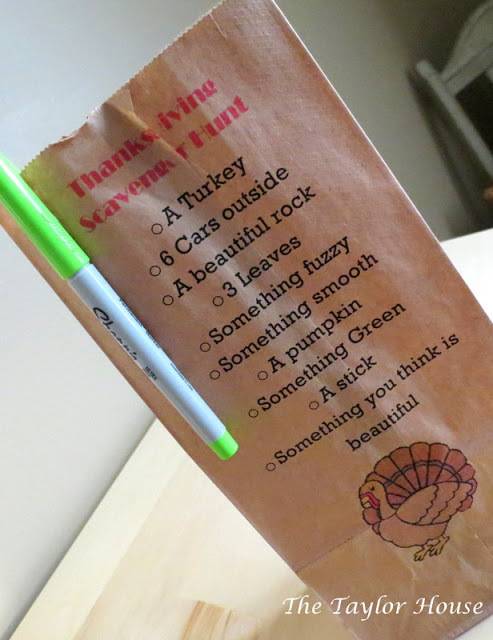 Thanksgiving
Scavenger Hunt
A Turkey
6 Cars outside
A beautiful rock
3 Leaves
Something fuzzy
Something smooth
A pumpkin
Something Green
A stick
Something you think is
beautiful
Sharpie
The Taylor House